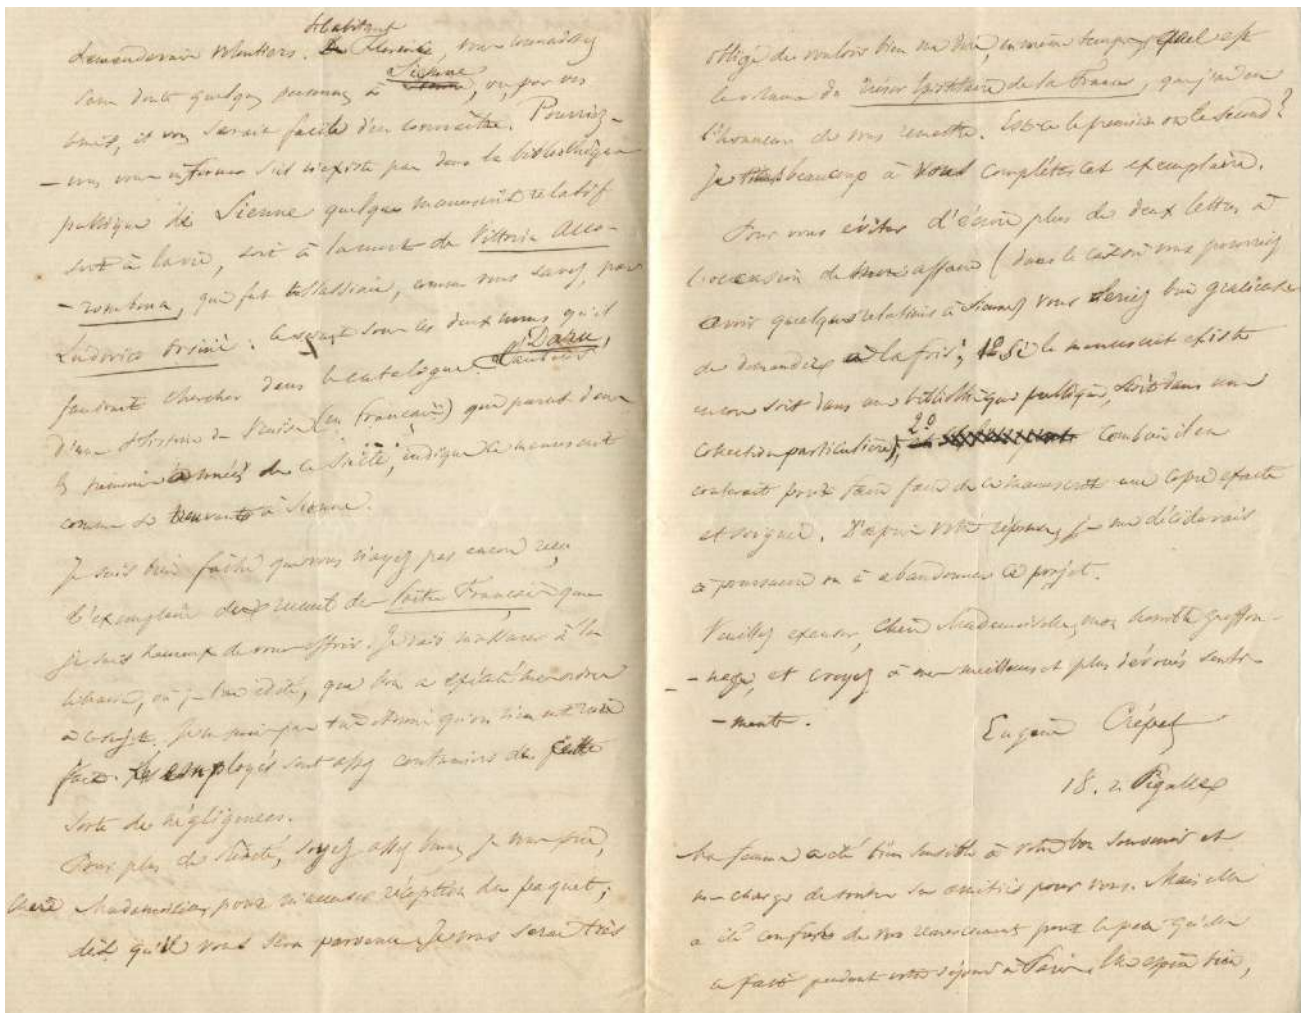 demanderais volontiers. Habitant
de Florence, vous connaissez
sans doute quelques personnes à Sienne, ou, par vos
amis, il vous serait facile d'en connaître. Pourriez-
-vous vous informer s'il n'existe pas dans la bibliothèque
publique de Sienne quelque manuscrit relatif
soit à la vie, soit à la mort de Vittoria Acco-
-rombona, qui fut assassinée, comme vous savez, par
Ludovico Orsini: c'est sous les deux noms qu'il
faudrait chercher dans le catalogue. Daru, l'auteur
d'une Histoire de Venise (en français) qui parut dans
les premières années de ce siècle, indique ce manuscrit
comme se trouvant à Sienne.
Je suis bien fâché que vous n'ayez pas encore reçu
l'exemplaire du recueil des Poëtes Français que
je suis heureux de vous offrir. Je vais m'assurer à la
librairie, où je l'ai édité, que l'on a exécuté mes ordres
à ce sujet. Je ne serais pas très étonné qu'on n'en eût rien
fait. Les employés sont assez coutumiers de cette
sorte de négligences.
Pour plus de sûreté, soyez assez bonne, je vous prie,
chère Mademoiselle, pour m'accuser réception du paquet,
dès qu'il vous sera parvenu. Je vous serai très
obligé de vouloir bien me dire, en même temps, quel est
le volume du Trésor Épistolaire de la France, que j'ai eu
l'honneur de vous remettre. Est-ce le premier ou le second?
Je tiens beaucoup à vous compléter cet exemplaire.
Pour vous éviter d'écrire plus de deux lettres à
l'occasion de mon affaire (dans le cas où vous pourriez
avoir quelques relations à Sienne) vous seriez bien gracieuse
de demander à la fois, 1o Si le manuscrit existe
encore soit dans une bibliothèque publique, soit dans une
collection particulière, 2o combien il en
coûterait pour faire faire de ce manuscrit une copie exacte
et soignée. D'après votre réponse, je me déciderais
à poursuivre ou à abandonner ce projet.
Veuillez excuser, chère Mademoiselle, mon horrible griffon-
-nage, et croyez à mes meilleurs et plus dévoués senti-
-ments.
Eugène Crépet
18. r. Pigalle
Ma femme a été bien sensible à votre bon souvenir et
me charge de toutes ses amitiés pour vous. Mais elle
a été confuse de vos remerciements pour le peu qu'elle
a fait pendant votre séjour à Paris. Elle espère bien,